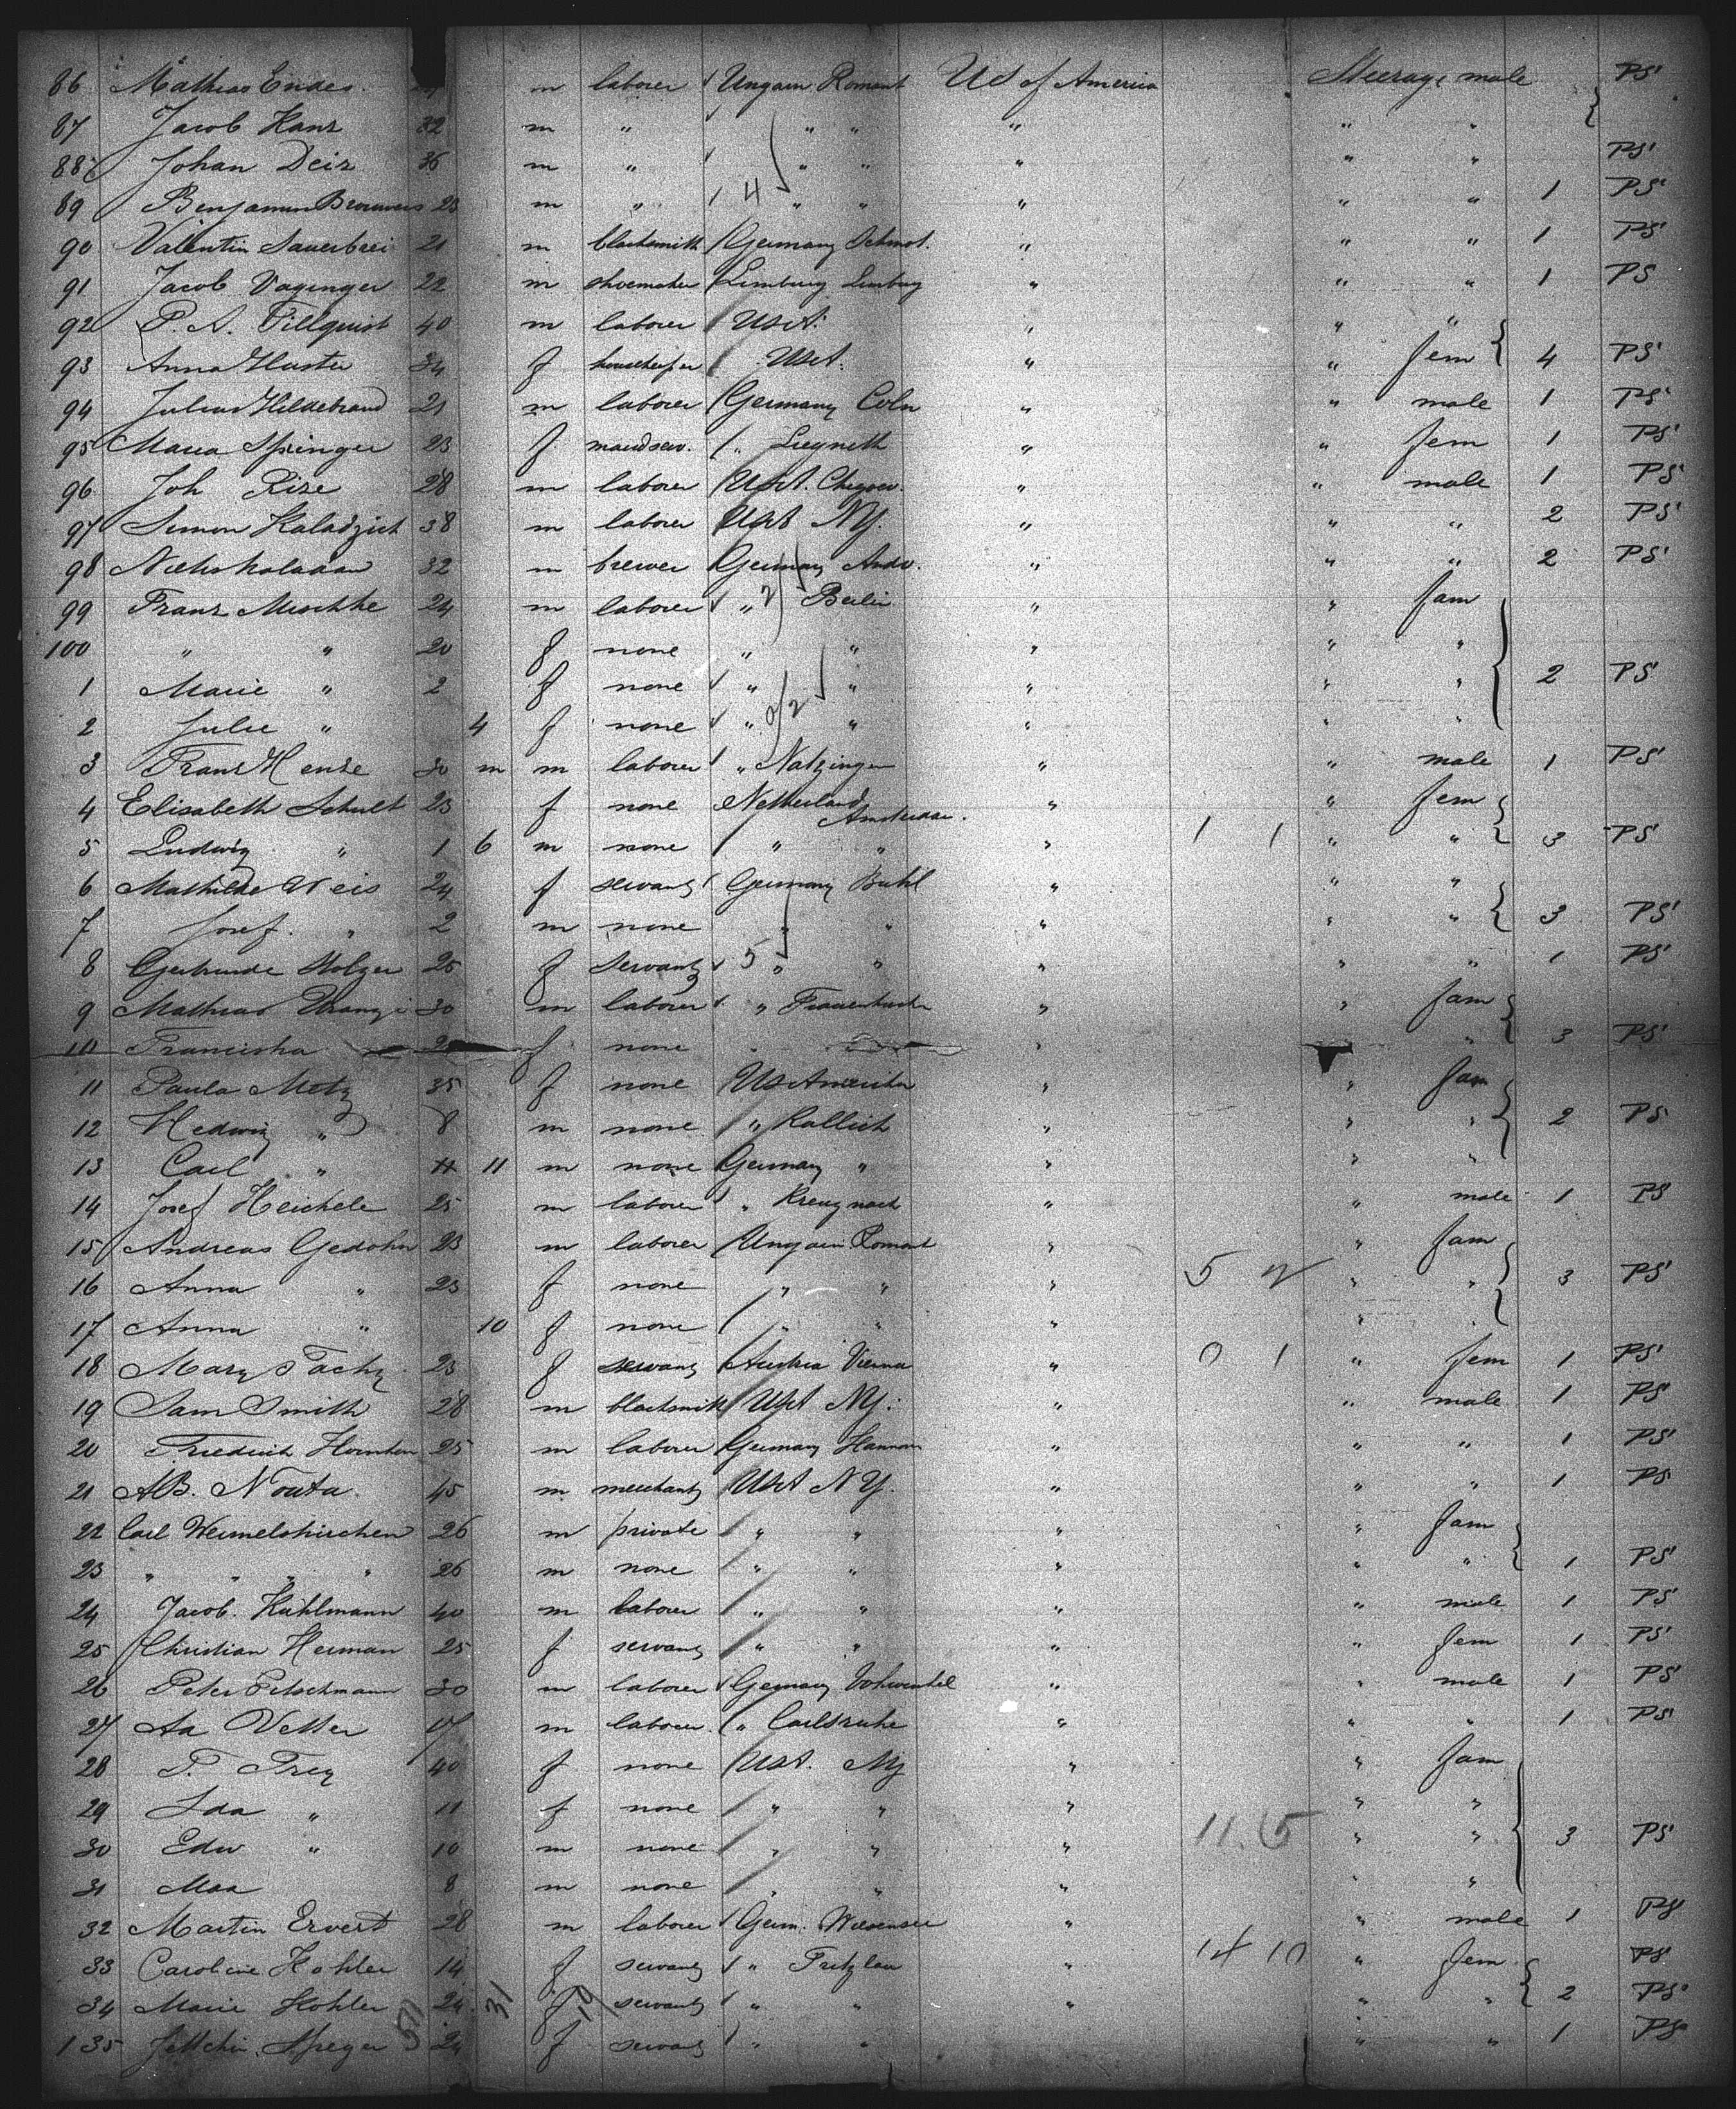 86 Mathias Endes m laborer Ungarn Romant US of America Steerage male PS
87 Jacob Hans 32 m " " " " " "
88 Johan Deis 36 m " " " " " " PS
89 Benjamin Brouwers 23 m " 4 " " " " " 1 PS
90 Valentin Sauerbrei 21 m blacksmith Germany " " " 1 PS
91 Jacob Vaginger 22 m shoemaker Limburg Limburg " " " 1 PS
92 P. A. Tillquist 40 m laborer USA. " " "
93 Anna Huster 34 f housekeeper USA. " " fem 4 PS
94 Julius Hildebrand 21 m laborer Germany Coln " " male 1 PS
95 Maria Springer 23 f maidserv. " Liegneth " " fem 1 PS
96 Joh Rise 28 m laborer USA. " " male 1 PS
97 Simon Kaladzich 38 m laborer USA NY. " " " 2 PS
98 32 m brewer Germany " " " 2 PS
99 Franz Mischke 24 m laborer " 2 Berlin " " fam
100 " " 20 f none " " " " "
1 Marie " 2 f none " " " " " 2 PS
2 Julie " 4 f none " 2 " " " "
3 Franz Hense 30 m m laborer " Natzingen " " male 1 PS
4 Elisabeth Schult 23 f none Netherland Amsterdam. " " fem
5 Ludwig " 1 6 m none " " " 1 1 " " 3 PS
6 Mathilde Weis 24 f servant Germany Buhl " " "
7 Josef. " 2 m none " " " " " 3 PS
8 Gertrude Holzer 25 f servant 5 " " " " " 1 PS
9 Mathias 30 m laborer " " " fam
10 Franciska f none " " 3 PS
11 Paula Metz 35 f none US America " " fam
12 Hedwig " 8 m none " Kallich " " " 2 PS
13 Carl " 11 11 m none Germany " " " "
14 Josef Heichele 25 m laborer " Kreuznach " " male 1 PS
15 Andreas Gedohn 23 m laborer Ungarn Romant " " fam
16 Anna " 23 f none " " " 5 2 " " 3 PS
17 Anna " 10 f none " " " " "
18 Mary Tachy 23 f servant Austria Vienna " 0 1 " fem 1 PS
19 Sam Smith 28 m blacksmith USA NY. " " male 1 PS
20 Friedrich 25 m laborer Germany " " " 1 PS
21 AB. Nouta 45 m merchant USA NY. " " " 1 PS
22 Carl Wermelskirchen 26 m private " " " " fam
23 " " " " 26 m none " " " " " 1 PS
24 Jacob. Kuhlmann 40 m laborer " " " " male 1 PS
25 Christian Herman 25 f servant " " " " fem 1 PS
26 Peter Petschmann 30 m laborer Germany Vohwinkel " " male 1 PS
27 Aa Vetter 17 m laborer " Carlsruhe " " " 1 PS
28 T. Frey 40 f none USA. NY " " fam
29 Ida " 11 f none " " " " "
30 Edw " 10 m none " " " 11.15 " " 3 PS
31 Max 8 m none " " " " "
32 Martin Ervert 28 m laborer Germ. Weisensee " " male 1 PS
33 Caroline Kohler 14 f servant " Fritzlar " 14 10 " fem PS
34 Marie Kohler 24 31 f 19 servant " " " " " 2 PS
135 Jettchen Speyer 51 24 f servant " " " " 1 PS